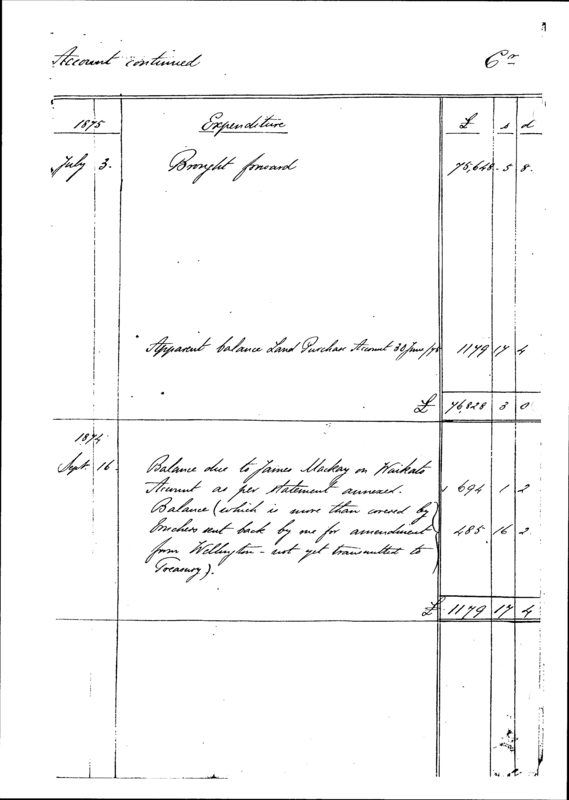 Account continued Cr
1875 Expenditure £ s d
July 3. Brought forward 75,648 - 5 8.
Apparent balance Land Purchase Account 30 June/75 1179 17 4
£ 76,828 3 0
1874
Sept. 16. Balance due to James Mackay on Waikato
Account as per statement annexed. 694 1 2
Balance (which is more than covered by
Vouchers sent back by me for amendment 485 16 2
from Wellington - not yet transmitted to
Treasury).
£ 1179 17 4